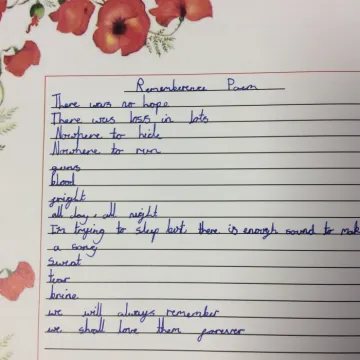 Rememberence Poem
There was no hope
There was loss in lots
Nowhere to hide
Nowhere to run
guns
blood
fright
all day, all night
I'm trying to sleep but, there is enough sound to mak
a song
Sweat
tear
brine
we will always remember
we shall love them forever